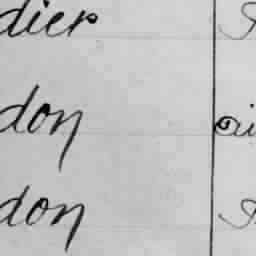 dier
don ai
don